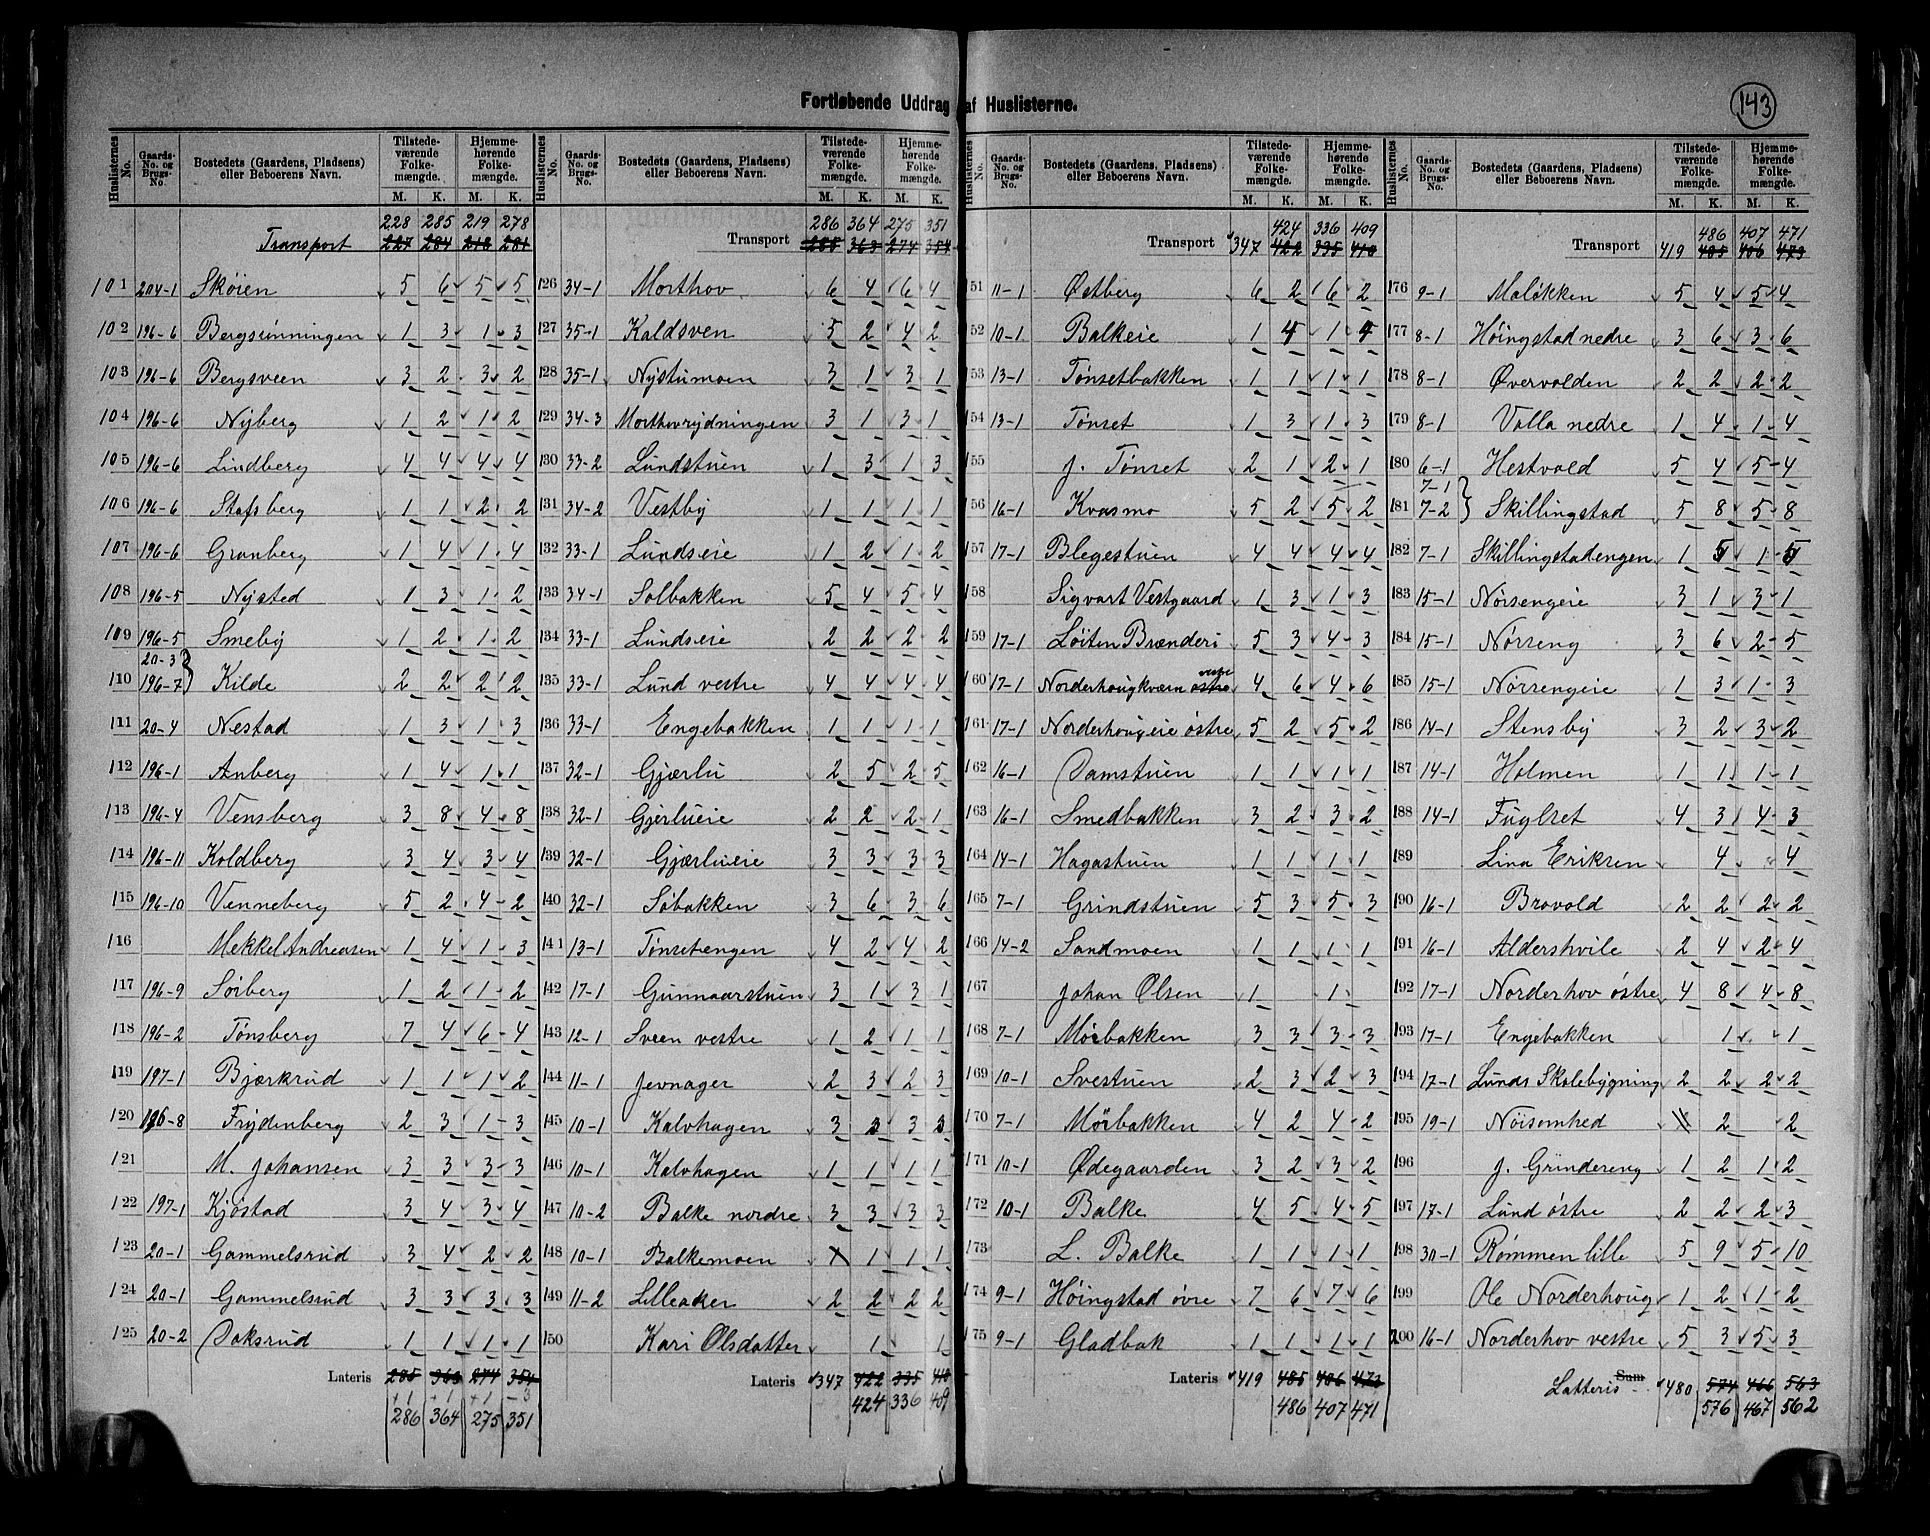 143
Fortløbende Uddrag af Huslisterne.
Huslisternes No. Gaards- No. og Brugs- No. Bostedets (Gaardens, Pladsens) eller Beboerens Navn. Tilstedeværende Folkemængde. M. K. Hjemmehørende Folkemængde. M. K.
228 285 219 278
Transport 227 284 218 281
101 204-1 Skøien 5 6 5 5
102 196-6 Bergsrønningen 1 3 1 3
103 196-6 Bergsveen 3 2 3 2
104 196-6 Nyberg 1 2 1 2
105 196-6 Lindberg 4 4 4 4
106 196-6 Stafsberg 1 1 2 2
107 196-6 Granberg 1 4 1 4
108 196-5 Nysted 1 3 1 2
109 196-5 Smeby 1 2 1 2
20-3
110 196-7 Kilde 2 2 2 2
111 20-4 Nestad 1 3 1 3
112 196-1 Anberg 1 4 1 1
113 196-4 Vensberg 3 8 4 8
114 196-11 Koldberg 3 4 3 4
115 196-10 Venneberg 5 2 4 2
116 Mekkel Andreasen 1 4 1 3
117 196-9 Sørberg 1 2 1 2
118 196-2 Tønsberg 7 4 6 4
119 197-1 Bjærkrud 1 1 1 2
120 196-8 Frydenberg 2 3 1 3
121 M. Johansen 3 3 3 3
122 197-1 Kjøstad 3 4 3 4
123 20-1 Gammelsrud 3 4 2 2
124 20-1 Gammelsrud 3 3 3 3
125 20-2 Daksrud 1 1 1 1
Lateris 285 363 274 354
+1 +1 +1 -3
286 364 275 351
Huslisternes No. Gaards- No. og Brugs- No. Bostedets (Gaardens, Pladsens) eller Beboerens Navn. Tilstedeværende Folkemængde. M. K. Hjemmehørende Folkemængde. M. K.
286 364 275 351
Transport 285 363 274 354
126 34-1 Morthov 6 4 6 4
127 35-1 Kaldsven 5 2 4 2
128 35-1 Nystumoen 3 1 3 1
129 34-3 Morthovrydningen 3 1 3 1
130 33-2 Lundstuen 1 3 1 3
131 34-2 Vestby 1 1 1 1
132 33-1 Lundseie 1 2 1 2
133 34-1 Solbakken 5 4 5 4
134 33-1 Lundseie 2 2 2 2
135 33-1 Lund vestre 4 4 4 4
136 33-1 Engebakken 1 1 1 1
137 32-1 Gjærlu 2 5 2 5
138 32-1 Gjerlueie 2 2 2 1
139 32-1 Gjærlueie 3 3 3 3
140 32-1 Søbakken 3 6 3 6
141 13-1 Tønsetengen 4 2 4 2
142 17-1 Gunnaarstuen 3 1 3 1
143 12-1 Sveen vestre 1 2 1 1
144 11-1 Jevnager 2 3 2 3
145 10-1 Kalvhagen 3 3 3 3
146 10-1 Kalvhagen 1 1 1 1
147 10-2 Balke nordre 3 3 3 3
148 10-1 Balkemoen 1 1 1
149 11-2 Lilleaker 2 2 2 2
150 Kari Olsdatter 1 1
Lateris 347 422 335 410
424 336 409
Huslisternes No. Gaards- No. og Brugs- No. Bostedets (Gaardens, Pladsens) eller Beboerens Navn. Tilstedeværende Folkemængde. M. K. Hjemmehørende Folkemængde. M. K.
424 336 409
Transport 347 422 335 410
151 11-1 Østberg 6 2 6 2
152 10-1 Balkeie 1 4 1 4
153 13-1 Tønsetbakken 1 1 1 1
154 13-1 Tønset 1 3 1 3
155 J. Tønset 2 1 2 1
156 16-1 Kvasmo 5 2 5 2
157 17-1 Blegestuen 4 4 4 4
158 Sigvart Vestgaard 1 3 1 3
159 17-1 Løiten Brænderi 5 3 4 3
vestre
160 17-1 Norderhougkværn østre 4 6 4 6
161 17-1 Norderhougeie østre 5 2 5 2
162 16-1 Damstuen 1 1 1 1
163 16-1 Smedbakken 3 2 3 2
164 14-1 Hagastuen 1 1 1 1
165 7-1 Grindstuen 5 3 5 3
166 14-2 Sandmoen 1 1 1 1
167 Johan Olsen 1 1
168 7-1 Mørbakken 3 3 3 3
169 10-1 Svestuen 2 3 2 3
170 7-1 Mörbakken 4 2 4 2
171 10-1 Ødegaarden 3 2 3 2
172 10-1 Balke 4 5 4 5
173 L. Balke 1 1 1 1
174 9-1 Høingstad øvre 7 6 7 6
175 9-1 Gladbak 1 1 1 1
Lateris 419 485 406 473
486 407 471
Huslisternes No. Gaards- No. og Brugs- No. Bostedets (Gaardens, Pladsens) eller Beboerens Navn. Tilstedeværende Folkemængde. M. K. Hjemmehørende Folkemængde. M. K.
486 407 471
Transport 419 485 406 473
176 9-1 Maløkken 5 4 5 4
177 8-1 Høingstad nedre 3 6 3 6
178 8-1 Øvervolden 2 2 2 2
179 8-1 Valla nedre 1 4 1 4
180 6-1 Hestvold 5 4 5 4
7-1
181 7-2 Skillingstad 5 8 5 8
182 7-1 Skillingstadengen 1 5 1 5
183 15-1 Nørsengeie 3 1 3 1
184 15-1 Nørreng 3 6 2 5
185 15-1 Nørrengeie 1 3 1 3
186 14-1 Stensby 3 2 3 2
187 14-1 Holmen 1 1 1 1
188 14-1 Fuglset 4 3 4 3
189 Lina Eriksen 4 4
190 16-1 Bravold 2 2 2 2
191 16-1 Aldershvile 2 4 2 4
192 17-1 Norderhov østre 4 8 4 8
193 17-1 Engebakken 1 1
194 17-1 Lunds Skolebygning 2 2 2 2
195 19-1 Nøisomhed 2 2
196 J. Grindereng 1 2 1 2
197 17-1 Lund østre 2 2 2 3
198 30-1 Rømmen lille 5 9 5 10
199 Ole Norderhoug 1 2 1 2
200 16-1 Norderhov vestre 5 3 5 3
Sum
Latteris 480 574 466 563
576 467 562